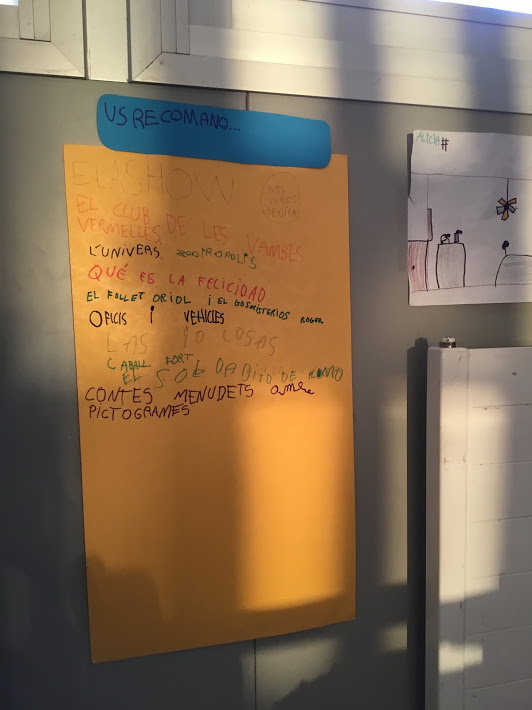 US RECOMANO...
ELASHOW
NOS VAMOS DE GIRA!
EL CLUB DE LES VAMBES
VERMELLES.
L'UNIVERS. ZOOTROPOLIS
QUÉ ES LA FELICIDAD
EL FOLLET ORIOL i EL GOS MISTERIÓS ROGER
OFICIS i VEHICLES
LAS 10 COSAS
CABALL FORT
EL SOLDADITO DE
CONTES MENUDETS amb
PICTOGRAMES
ALICIA#